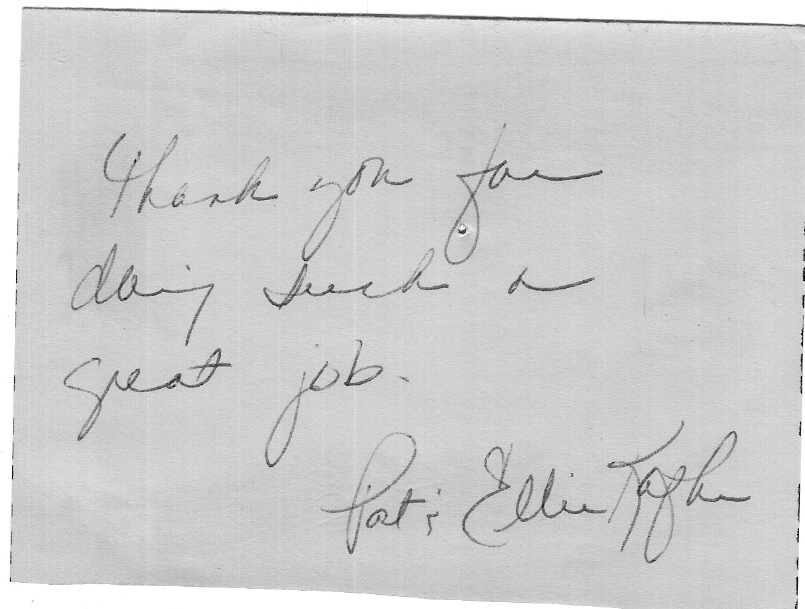 Thank you for
doing such a
great job.
Pat & Ellie